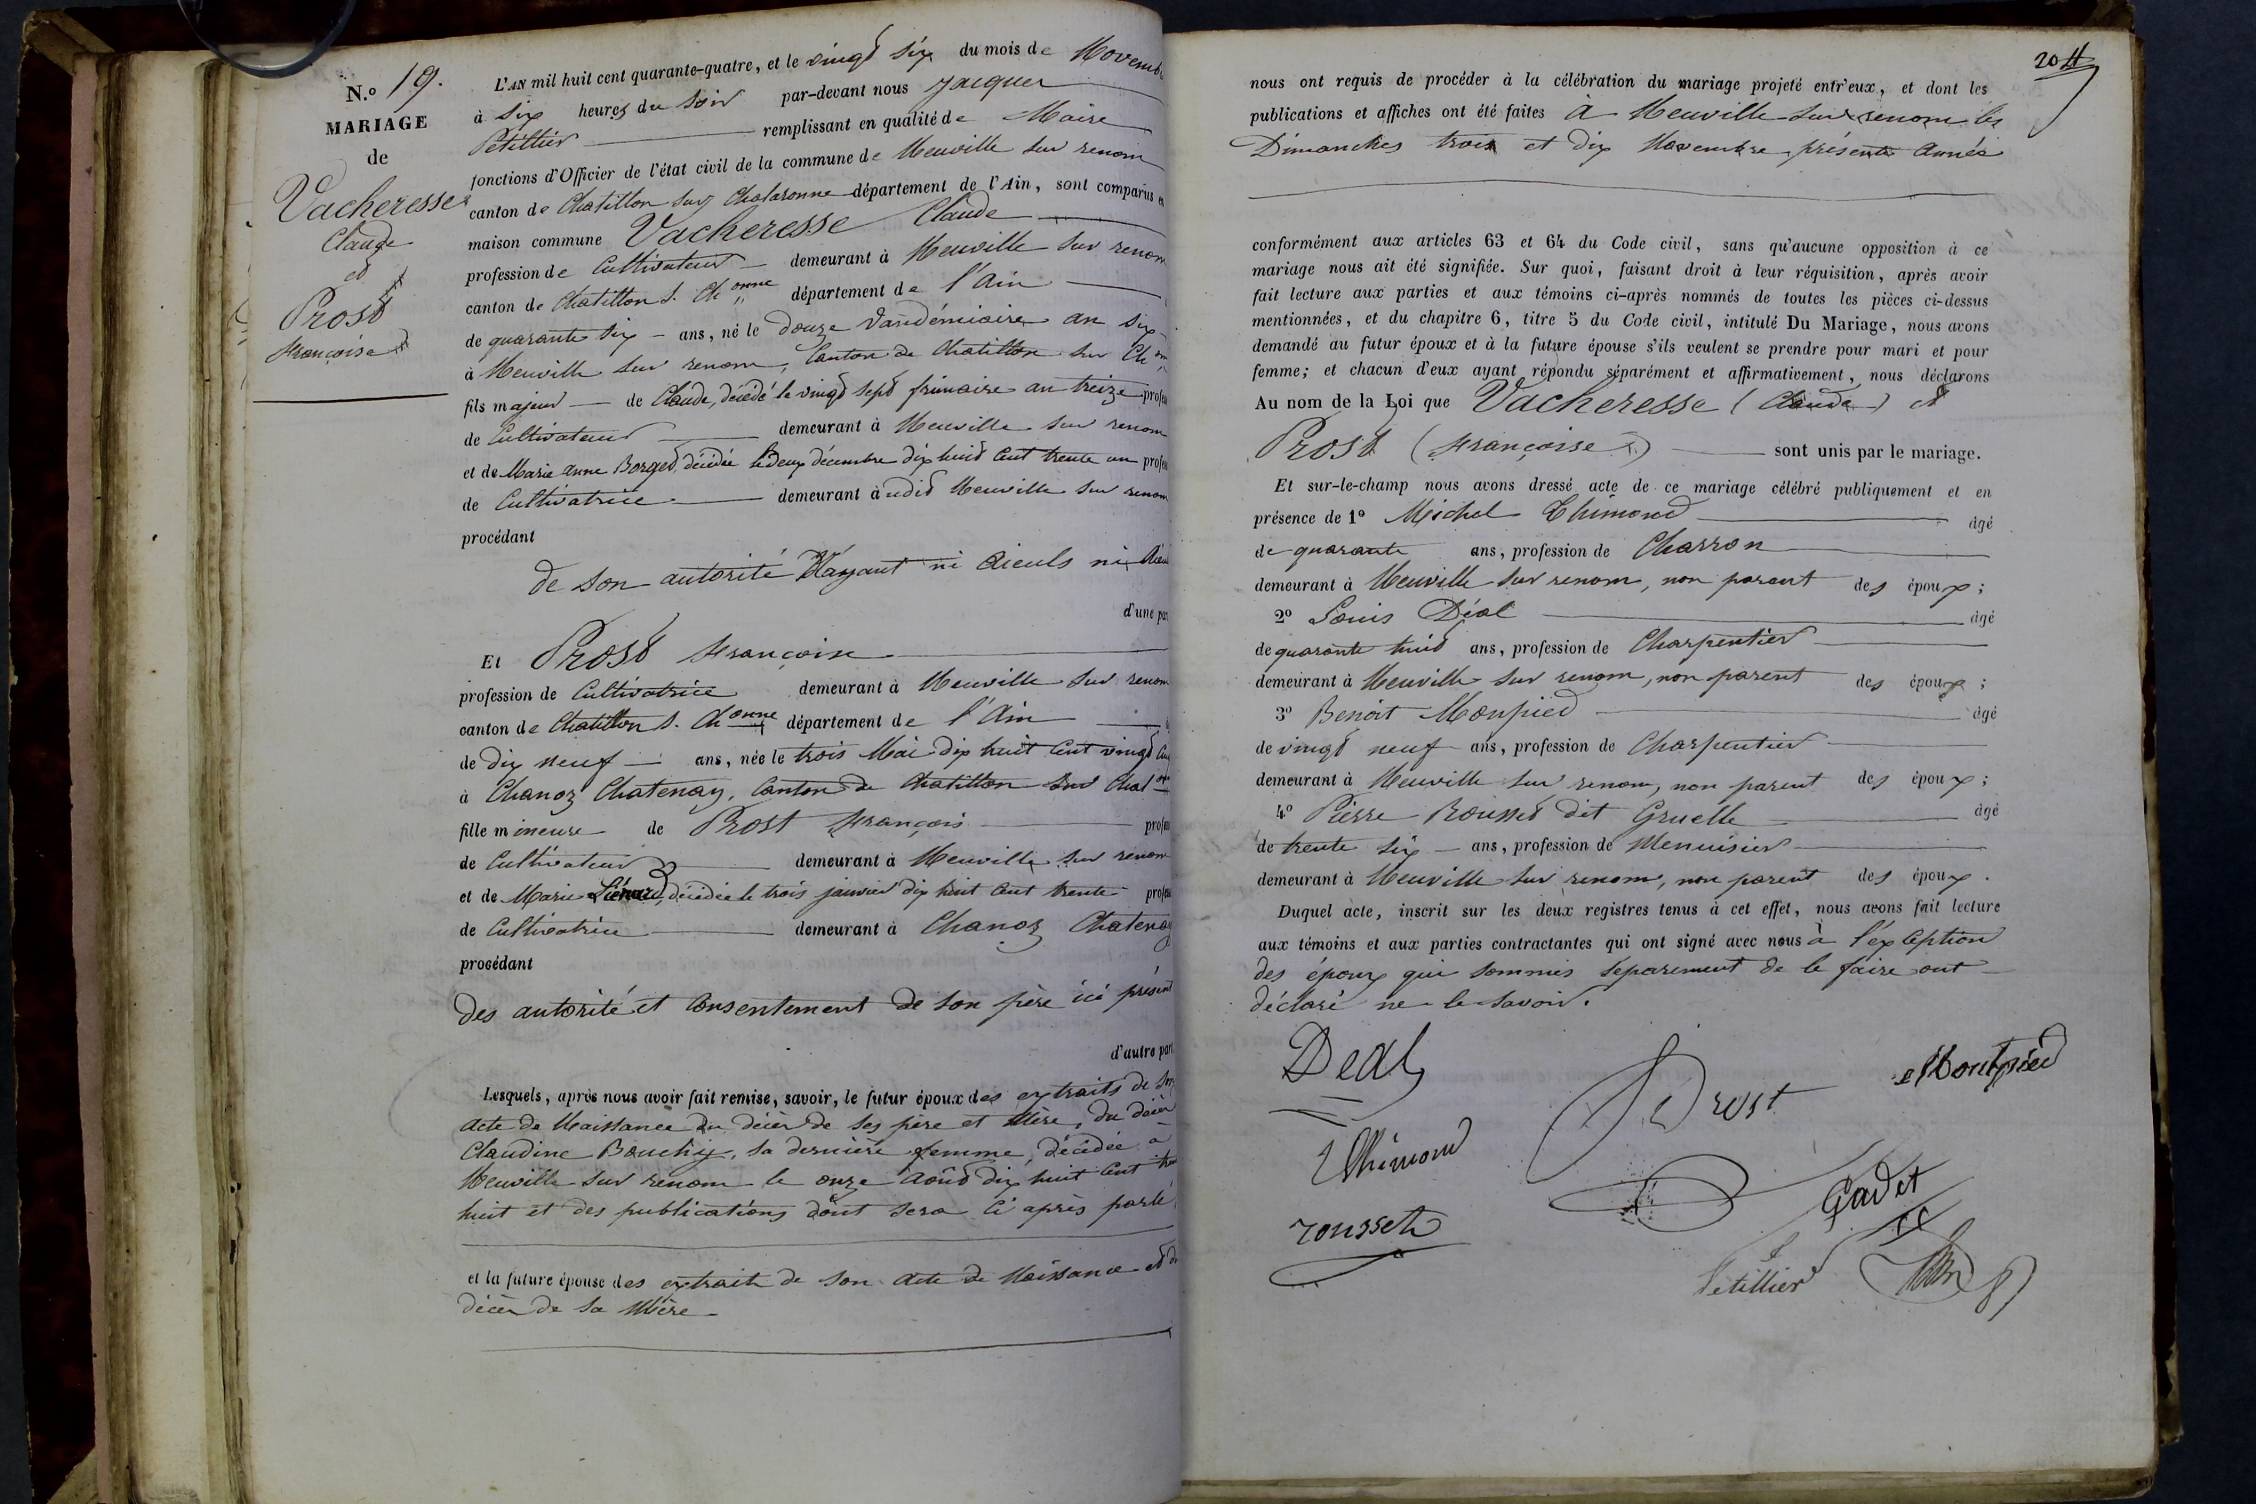 N.º 19.
MARIAGE
de
Vacheresse
Claude
et
Prost
françoise
L'AN mil huit cent quarante-quatre, et le vingt six du mois de Novemb
à six heures du soir par-devant nous Jacques
Petillier remplissant en qualité de Maire
fonctions d'Officier de l'état civil de la commune de Neuville sur renom
canton de Chatillon sur Chalaronne département de l'Ain, sont comparus en
maison commune Vacheresse Claude
profession de Cultivateur demeurant à Neuville sur renom
canton de Chatillon s. Chonne département de l'Ain
de quarante six ans, né le douze Vandémiaire an six
à Neuville sur renom, Canton de Chatillon sur Ch
fils majeur de Claude, décédé le vingt sept frimaire an treize profes
de Cultivateur demeurant à Neuville sur renom
et de Marie anne Borget, décédée le deux décembre dix huit cent trente un profes
de Cultivatrice demeurant à udit Neuville sur renom
procédant
de son autorité N'ayant ni aieuls ni aieu
d'une par
Et Prost françoise
profession de Cultivatrice demeurant à Neuville sur renom
canton de Chatillon s. Chonne département de l'Ain
de dix neuf ans, née le trois Mai dix huit cent vingt cin
à Chanoz Chatenay, Canton de Chatillon sur Chal
fille mineure de Prost françois profes
de Cultivateur demeurant à Neuville sur renom
et de Marie décédée le trois janvier dix huit cent trente profes
de Cultivatrice demeurant à Chanoz Chatenay
procédant
des autorité et consentement de son père ici présent
d'autre part
Lesquels, après nous avoir fait remise, savoir, le futur époux des extraits de son
acte de Naissance du décès de ses père et Mère, du décès
Claudine Bouchy, sa dernière femme, décédée à
Neuville sur renom le onze Août dix huit cent tren
huit et des publications dont sera ci après parlé
et la future épouse des extraits de son acte de Naissance et du
décès de sa Mère
204
nous ont requis de procéder à la célébration du mariage projeté entr'eux, et dont les
publications et affiches ont été faites à Neuville sur renom les
Dimanches trois et dix Novembre présente année
conformément aux articles 63 et 64 du Code civil, sans qu'aucune opposition à ce
mariage nous ait été signifiée. Sur quoi, faisant droit à leur réquisition, après avoir
fait lecture aux parties et aux témoins ci-après nommés de toutes les pièces ci-dessus
mentionnées, et du chapitre 6, titre 5 du Code civil, intitulé Du Mariage, nous avons
demandé au futur époux et à la future épouse s'ils veulent se prendre pour mari et pour
femme; et chacun d'eux ayant répondu séparément et affirmativement, nous déclarons
Au nom de la Loi que Vacheresse (Claude) et
Prost (françoise) sont unis par le mariage.
Et sur-le-champ nous avons dressé acte de ce mariage célébré publiquement et en
présence de 1º Michel Thimond âgé
de quarante ans, profession de Charron
demeurant à Neuville sur renom, non parent des époux;
2º Louis Déal âgé
de quarante huit ans, profession de Charpentier
demeurant à Neuville sur renom, non parent des époux;
3º Benoit Monpied âgé
de vingt neuf ans, profession de Charpentier
demeurant à Neuville sur renom, non parent des époux;
4º Pierre Rousset dit Gruelle âgé
de trente six ans, profession de Menuisier
demeurant à Neuville sur renom, non parent des époux.
Duquel acte, inscrit sur les deux registres tenus à cet effet, nous avons fait lecture
aux témoins et aux parties contractantes qui ont signé avec nous à l'exception
des époux qui sommés séparement de le faire ont
déclaré ne le savoir.
Deal
Prost
Montpied
Thimond
Gadet
rousset
Petillier